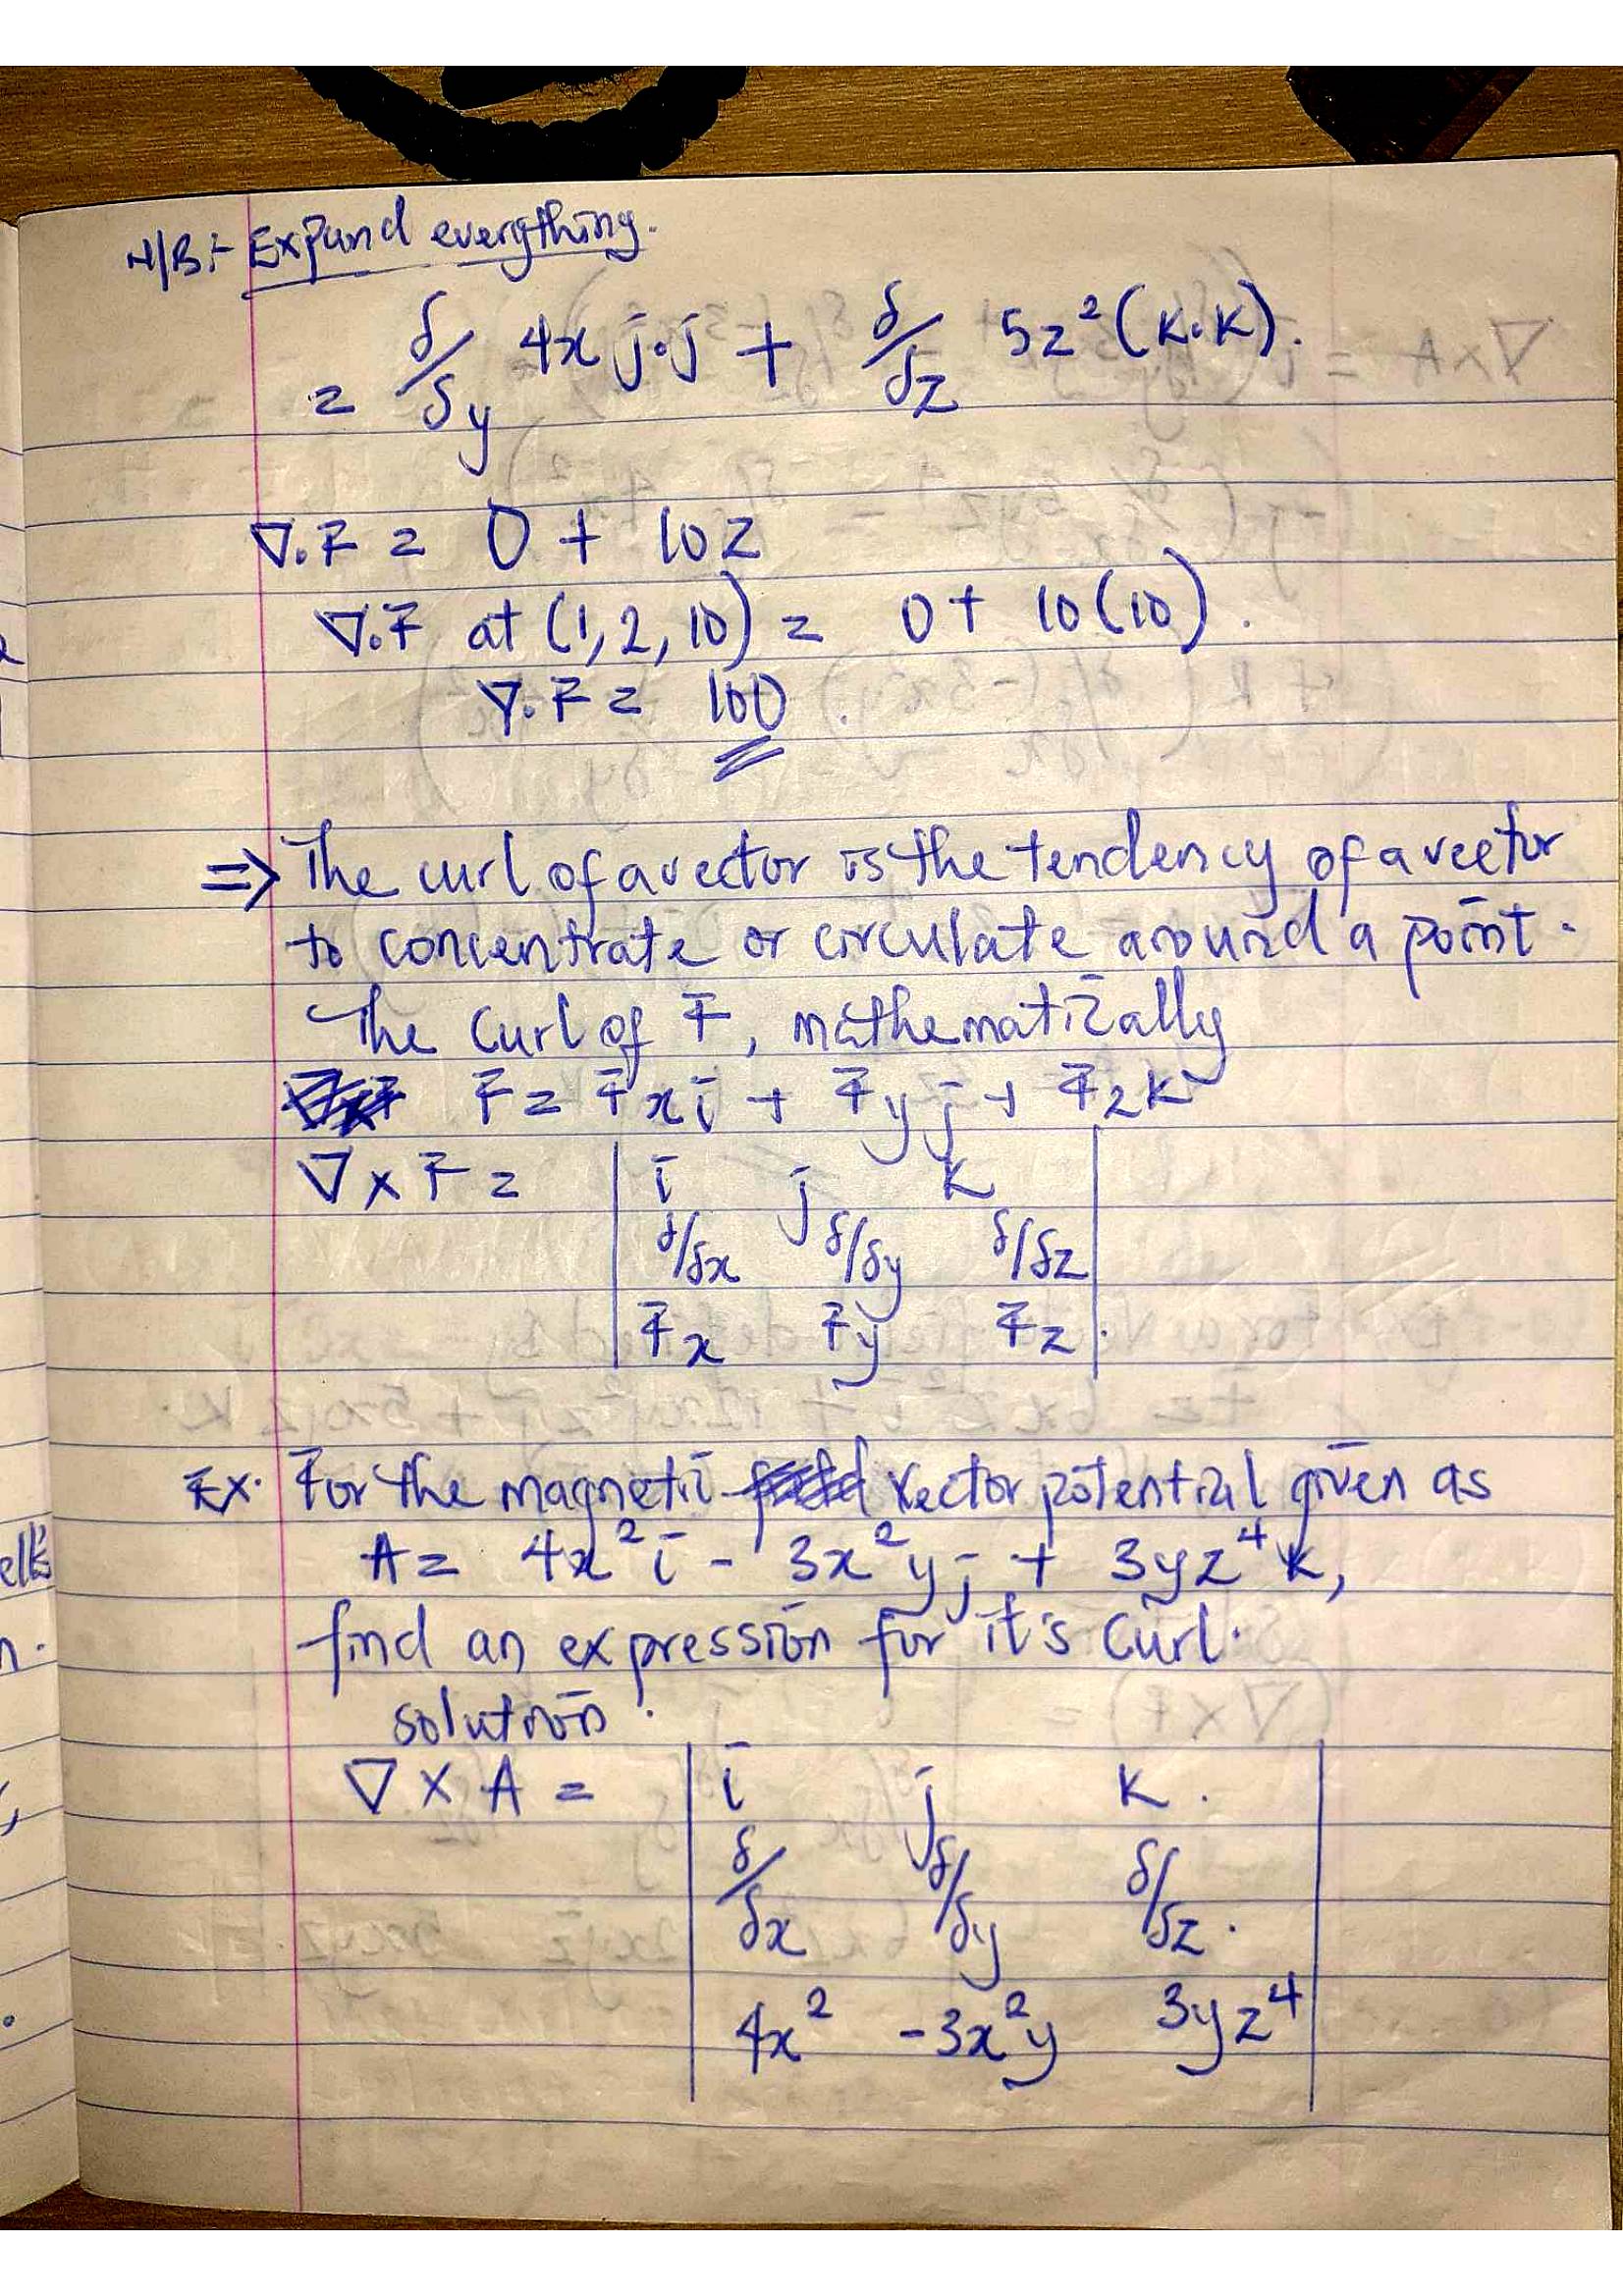 N/B:- Expand everything.
= δ/δy 4x j·j + δ/δz 5z² (k·k).
∇·F = 0 + 10z
∇·F at (1, 2, 10) = 0 + 10(10).
∇·F = 100
⇒ The curl of a vector is the tendency of a vector
to concentrate or circulate around a point.
The curl of F, mathematically
F = Fxi + Fyj + Fzk
∇ × F = | i j k |
| δ/δx δ/δy δ/δz |
| Fx Fy Fz |.
Ex. For the magnetic vector potential given as
A = 4x²i - 3x²yj + 3yz⁴k,
find an expression for it's curl.
solution.
∇ × A = | i j k. |
| δ/δx δ/δy δ/δz. |
| 4x² -3x²y 3yz⁴ |